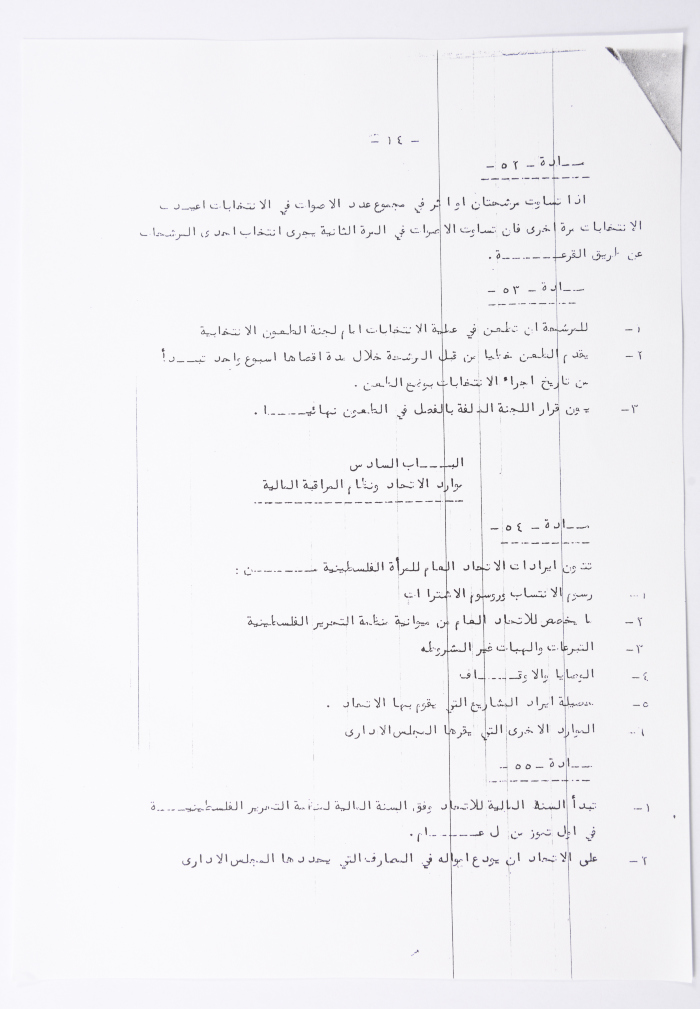 - ١٤ -
مــادة - ٥٢ -
اذا تساوت مرشحتان او اكثر في مجموع عدد الاصوات في الانتخابات اعيدت
الانتخابات مرة اخرى فان تساوت الاصوات في المرة الثانية يجرى انتخاب احدى المرشحات
عن طريق القرعــــــة .
مــادة - ٥٣ -
١- للمرشحة ان تطعن في عملية الانتخابات امام لجنة الطعون الانتخابية
٢- يقدم الطعن خطيا من قبل المرشحة خلال مدة اقصاها اسبوع واحد تبــدأ
من تاريخ اجراء الانتخابات موضع الطعن .
٣- يكون قرار اللجنة المكلفة بالفصل في الطعون نهائيــــا .
البــــاب السادس
موارد الاتحاد ونظام المراقبة المالية
مــادة - ٥٤ -
تتكون ايرادات الاتحاد العام للمرأة الفلسطينية مــــــن :
١- رسوم الانتساب ورسوم الاشتراكات
٢- ما يخصص للاتحاد العام من ميزانية منظمة التحرير الفلسطينية
٣- التبرعات والهبات غير المشروطه
٤- الوصايا والاوقـــــاف
٥- حصيلة ايراد المشاريع التي يقوم بها الاتحاد .
٦- الموارد الاخرى التي يقرها المجلس الادارى
مــادة - ٥٥ -
١- تبدأ السنة المالية للاتحاد وفق السنة المالية لمنظمة التحرير الفلسطينيــــة
في اول تموز من كل عـــــام .
٢- على الاتحاد ان يودع امواله في المصارف التي يحددها المجلس الادارى